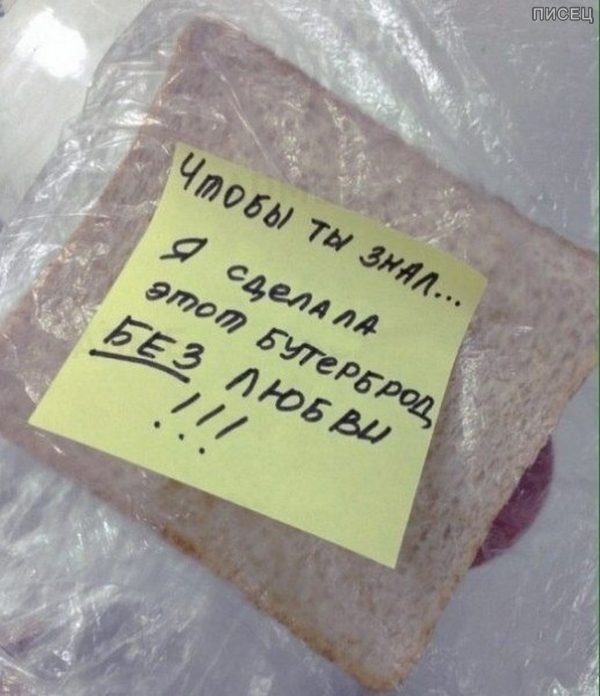 ПИСЕЦ
Чтобы ты знал...
Я сделала
этот бутерброд
БЕЗ любви
!!!